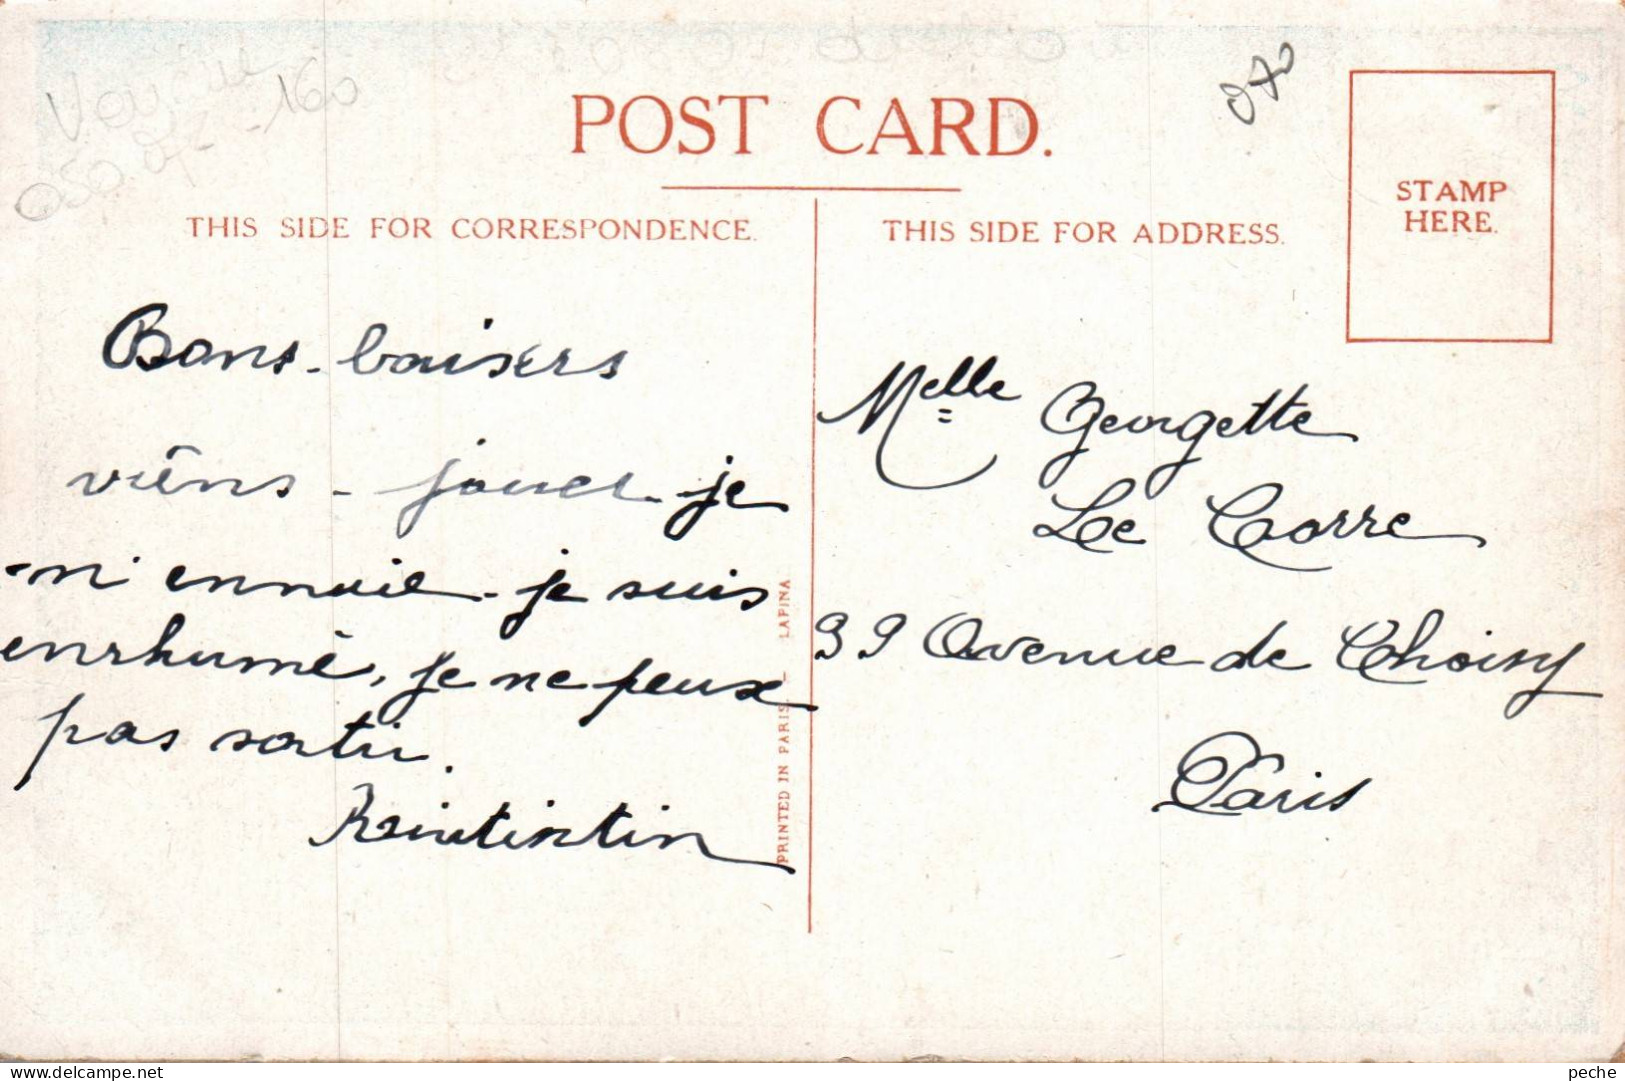 POST CARD.
THIS SIDE FOR CORRESPONDENCE.
THIS SIDE FOR ADDRESS.
STAMP
HERE.
Bons-baisers
viens - jouer - je
m'ennuie - je suis
enrhumé, je ne peux
pas sortir.
Rintintin
PRINTED IN PARIS. – LAPINA
Melle Georgette
Le Corre
39 Avenue de Choisy
Paris
160
delcampe.net
peche